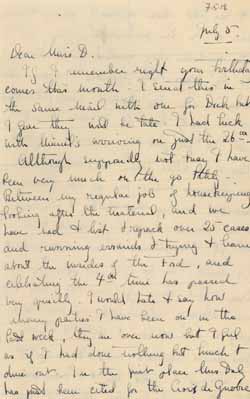 July 5.
Dear Miss D.
If I remember right your birthday
comes this month. I send this in
the same mail with one for Dick but
I fear they will be late. I had luck
with Minnie's arriving on just the 26th.
Although supposedly not busy I have
been very much on the go lately.
Between my regular job of housekeeping,
looking after the material, and we
have had to list & repack over 25 cases
and running errands & trying to learn
about the insides of the Ford, and
celebrating the 4th time has passed
very quickly. I would hate to say how
many parties I have been on in the
past week, they are over now but I feel
as if I had done nothing but lunch &
dine out. In the first place Miss Daly
has just been cited for the Croix de Guerre